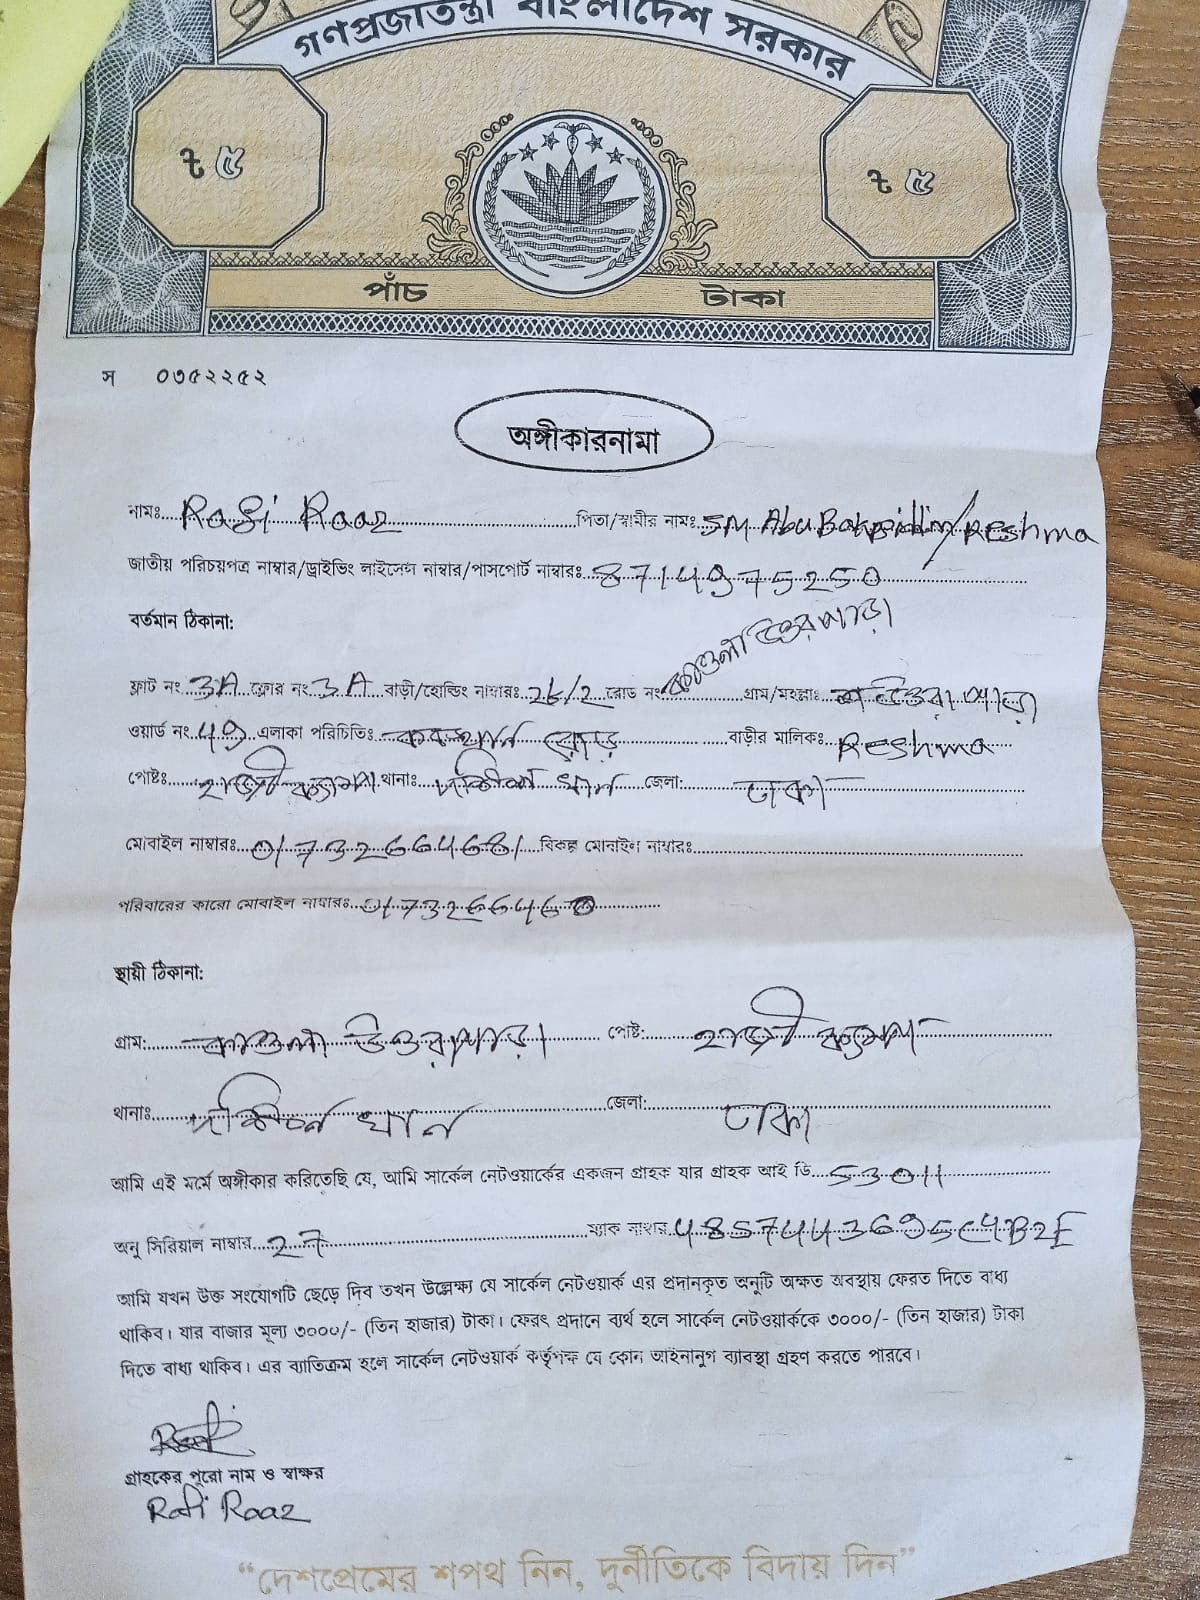 গণপ্রজাতন্ত্রী বাংলাদেশ সরকার
৳ ৫ ৳ ৫
পাঁচ টাকা
স ০৭৫২২৫২
অঙ্গীকারনামা
নামঃ Rafi Raaz পিতা/স্বামীর নামঃ SM Abu /Reshma
জাতীয় পরিচয়পত্র নাম্বার/ড্রাইভিং লাইসেন্স নাম্বার/পাসপোর্ট নাম্বারঃ 8714975250
বর্তমান ঠিকানা:
ফ্লাট নং 3A ফ্লোর নং 3A বাড়ী/হোল্ডিং নাম্বারঃ রোড নং কাওলা উত্তরপাড়া গ্রাম/মহল্লাঃ উত্তরা পাড়া
ওয়ার্ড নং 49 এলাকা পরিচিতিঃ কবরস্থান রোড বাড়ীর মালিকঃ Reshma
পোষ্টঃ হাজী ক্যাম্প থানাঃ দক্ষিন খান জেলা: ঢাকা
মোবাইল নাম্বারঃ 01732664681 বিকল্প মোবাইল নাম্বারঃ
পরিবারের কারো মোবাইল নাম্বারঃ 01732664660
স্থায়ী ঠিকানা:
গ্রাম: কাওলা উত্তরপাড়া পোষ্ট: হাজী ক্যাম্প
থানাঃ দক্ষিন খান জেলা: ঢাকা
আমি এই মর্মে অঙ্গীকার করিতেছি যে, আমি সার্কেল নেটওয়ার্কের একজন গ্রাহক যার গ্রাহক আই ডি 53011
অনু সিরিয়াল নাম্বার 27 ম্যাক নাম্বার 48574443695C4B2E
আমি যখন উক্ত সংযোগটি ছেড়ে দিব তখন উল্লেক্ষ্য যে সার্কেল নেটওয়ার্ক এর প্রদানকৃত অনুটি অক্ষত অবস্থায় ফেরত দিতে বাধ্য
থাকিব। যার বাজার মূল্য ৩০০০/- (তিন হাজার) টাকা। ফেরৎ প্রদানে ব্যর্থ হলে সার্কেল নেটওয়ার্ককে ৩০০০/- (তিন হাজার) টাকা
দিতে বাধ্য থাকিব। এর ব্যাতিক্রম হলে সার্কেল নেটওয়ার্ক কর্তৃপক্ষ যে কোন আইনানুগ ব্যাবস্থা গ্রহণ করতে পারবে।
গ্রাহকের পুরো নাম ও স্বাক্ষর
Rafi Raaz
“দেশপ্রেমের শপথ নিন, দুর্নীতিকে বিদায় দিন”